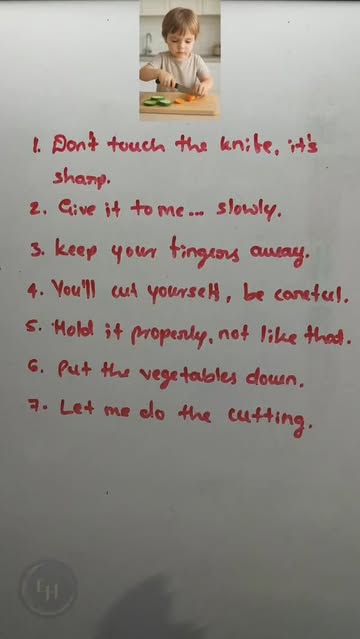 1. Don't touch the knife, it's
sharp.
2. Give it to me... slowly.
3. Keep your fingers away.
4. You'll cut yourself, be careful.
5. Hold it properly, not like that.
6. Put the vegetables down.
7. Let me do the cutting.
EH